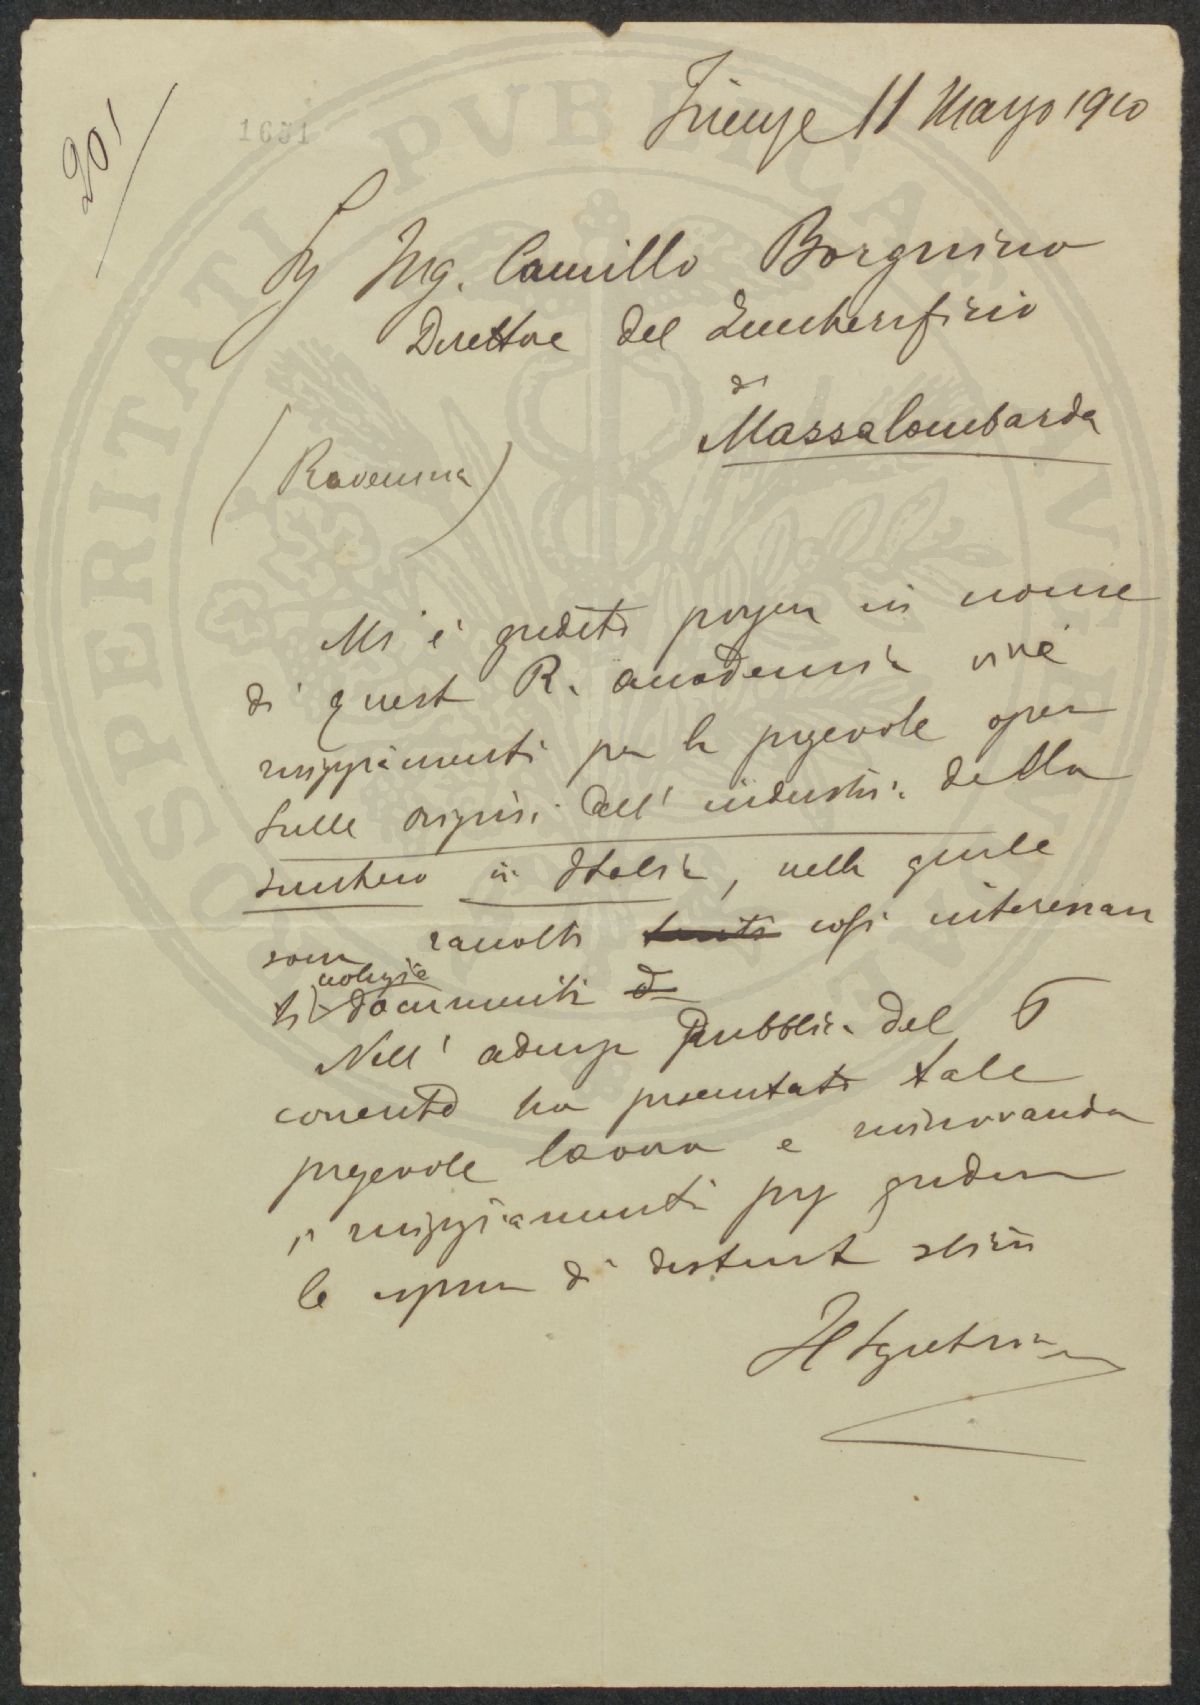 201
1651
Firenze 11 Marzo 1910
Sg Ing. Camillo Borgnino
Direttore del Zuccherifizio
di
Massalombarda
(Ravenna)
Mi è gradito porgere in nome
di questa R. accademia vive
ringraziamenti per la pregevole opera
Sulle origini dell' industria dello
zucchero in Italia, nella quale
sono raccolti tanti così interessan
ti notizie documenti d
Nell' adunza pubblica del 6
corrente ha presentato tale
pregevole lavoro e rinnovando
i ringraziamenti gradire
le di distinta stima
Il Segretario
PROSPERITATI PVBLICAE